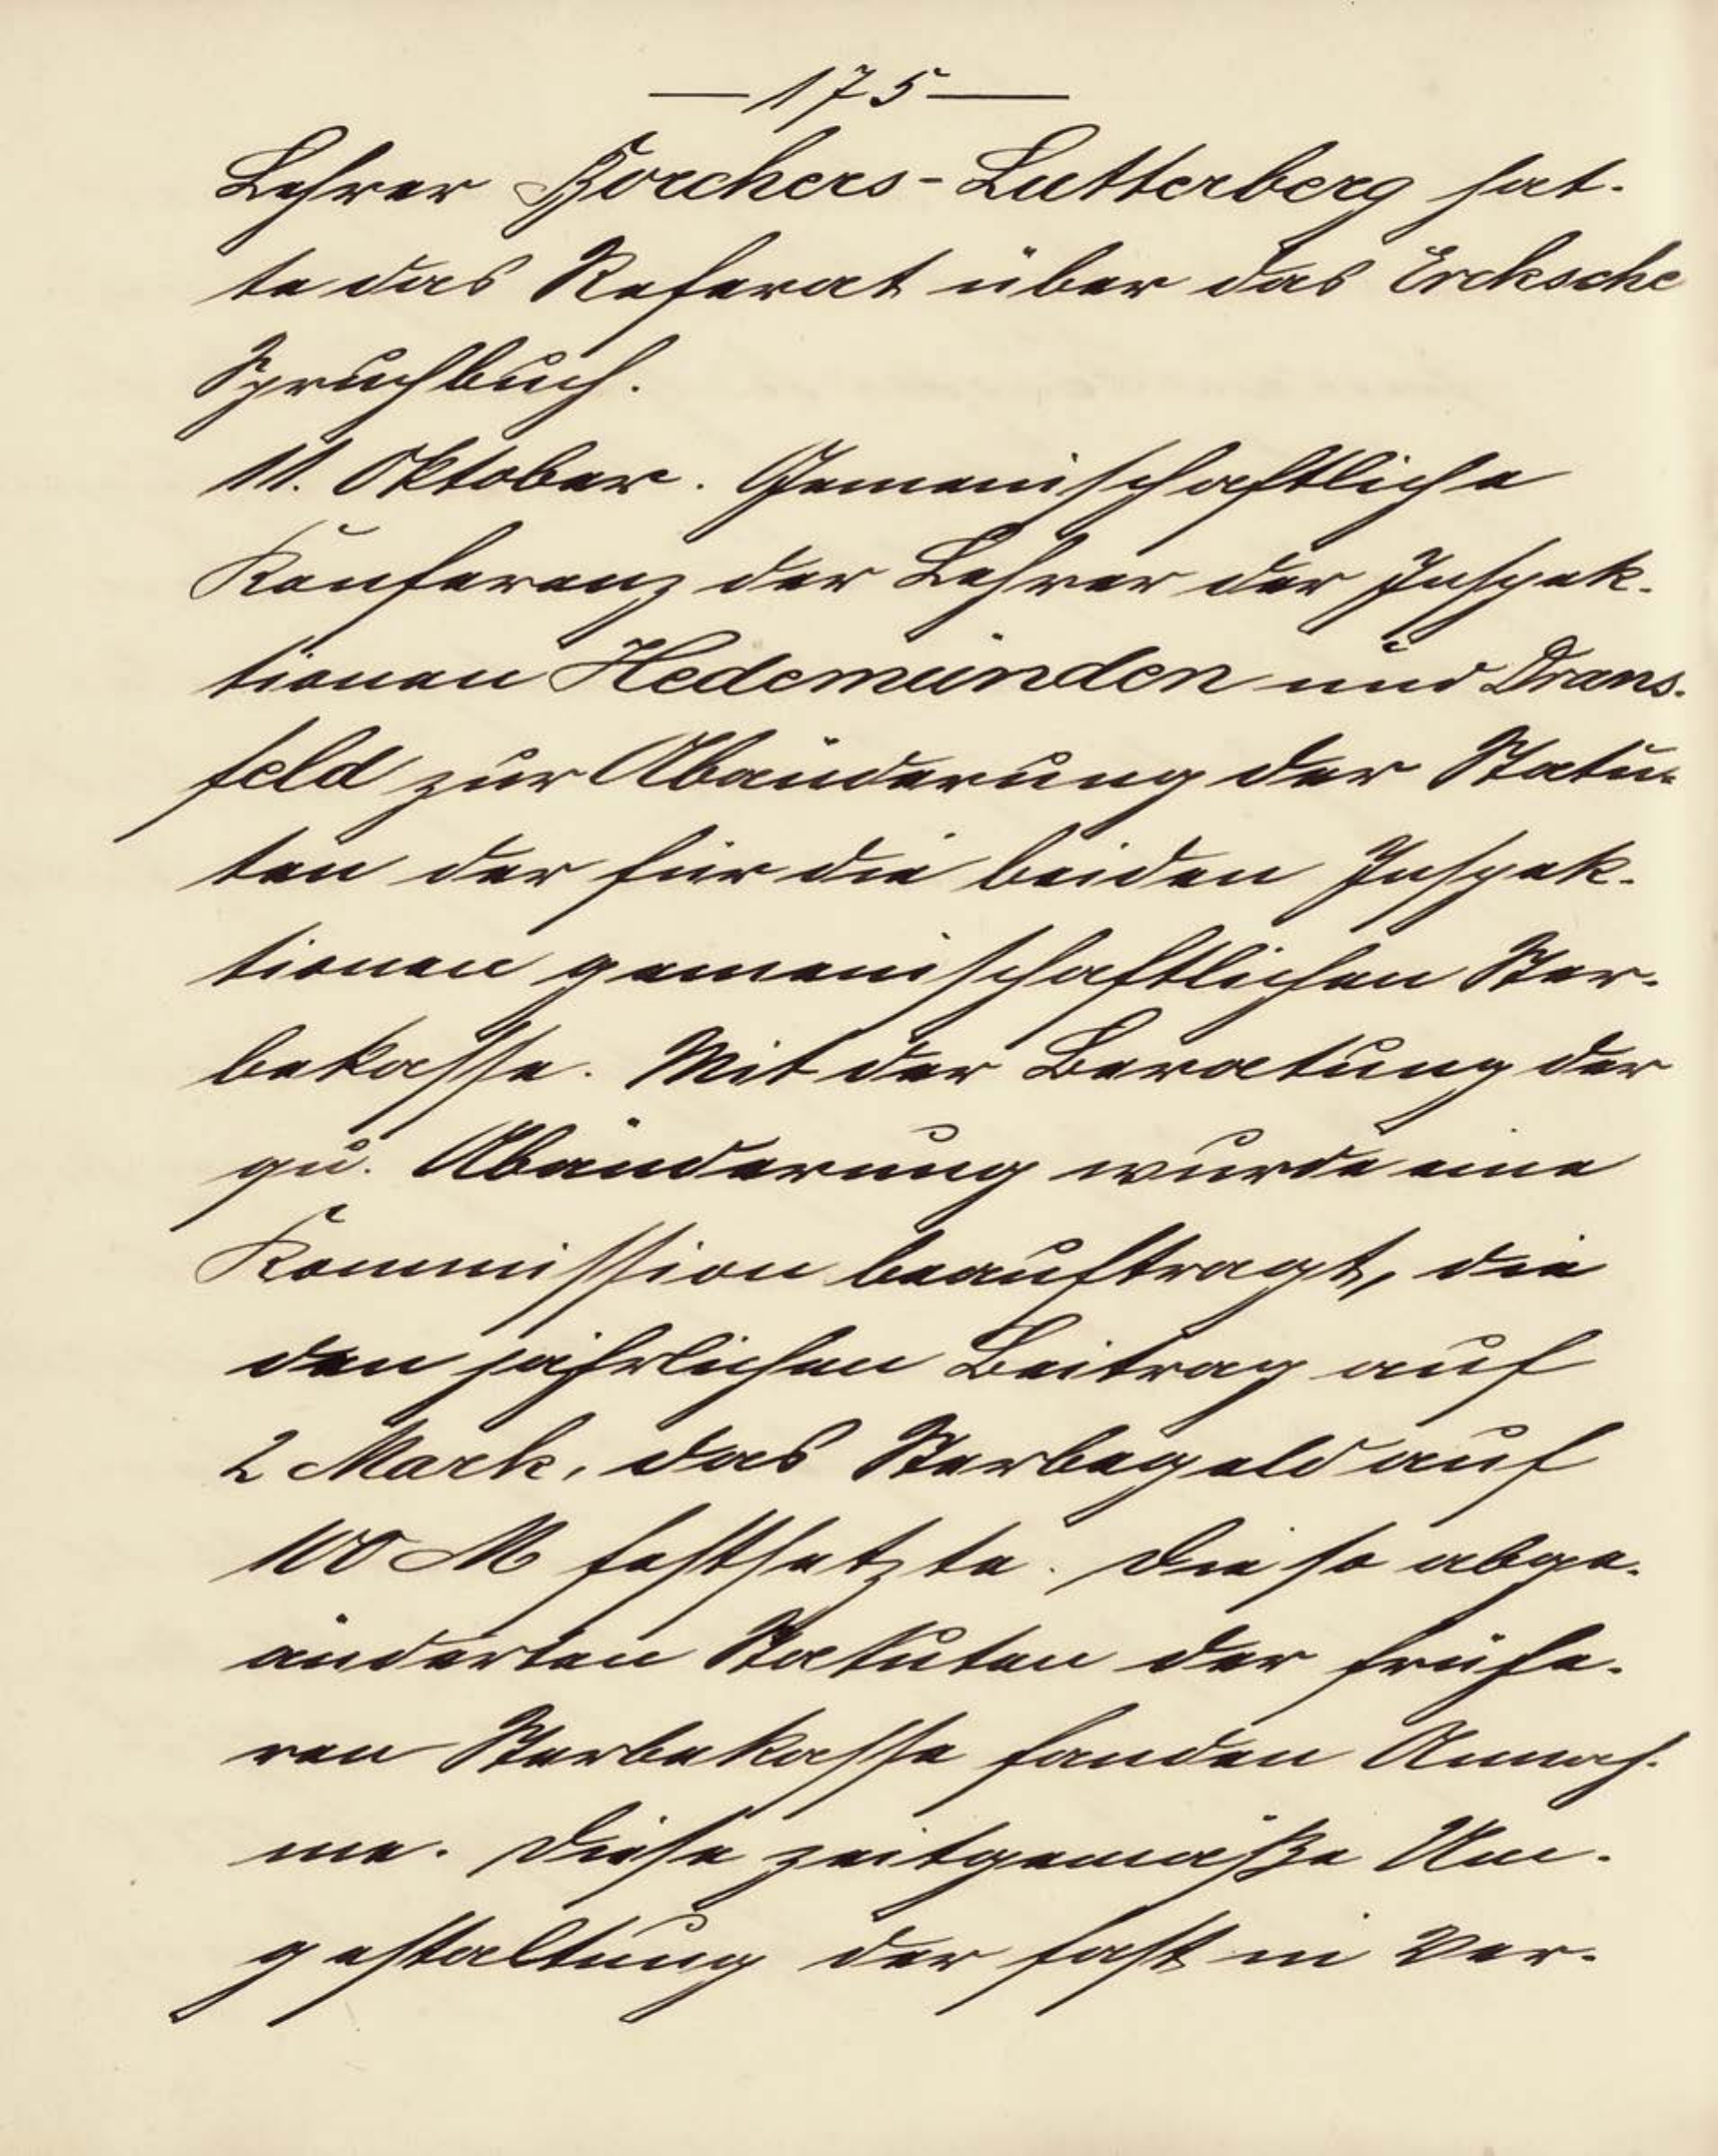 — 175 —
Lehrer Borchers-Lutterberg hat-
te das Referat über das Ercksche
Spruchbuch.
11. Oktober. Gemeinschaftliche
Konferenz der Lehrer der Inspek-
tionen Hedemünden und Drans-
feld zur Abänderung der Statu-
ten der für die beiden Inspek-
tionen gemeinschaftlichen Ster-
bekasse. Mit der Beratung der
qu. Abänderung wurde eine
Kommission beauftragt, die
den jährlichen Beitrag auf
2 Mark, das Sterbegeld auf
100 M festsetzte. Die so abge-
änderten Statuten der frühe-
ren Sterbekasse fanden Annah-
me. Diese zeitgemäße Um-
gestaltung der fast in Ver-